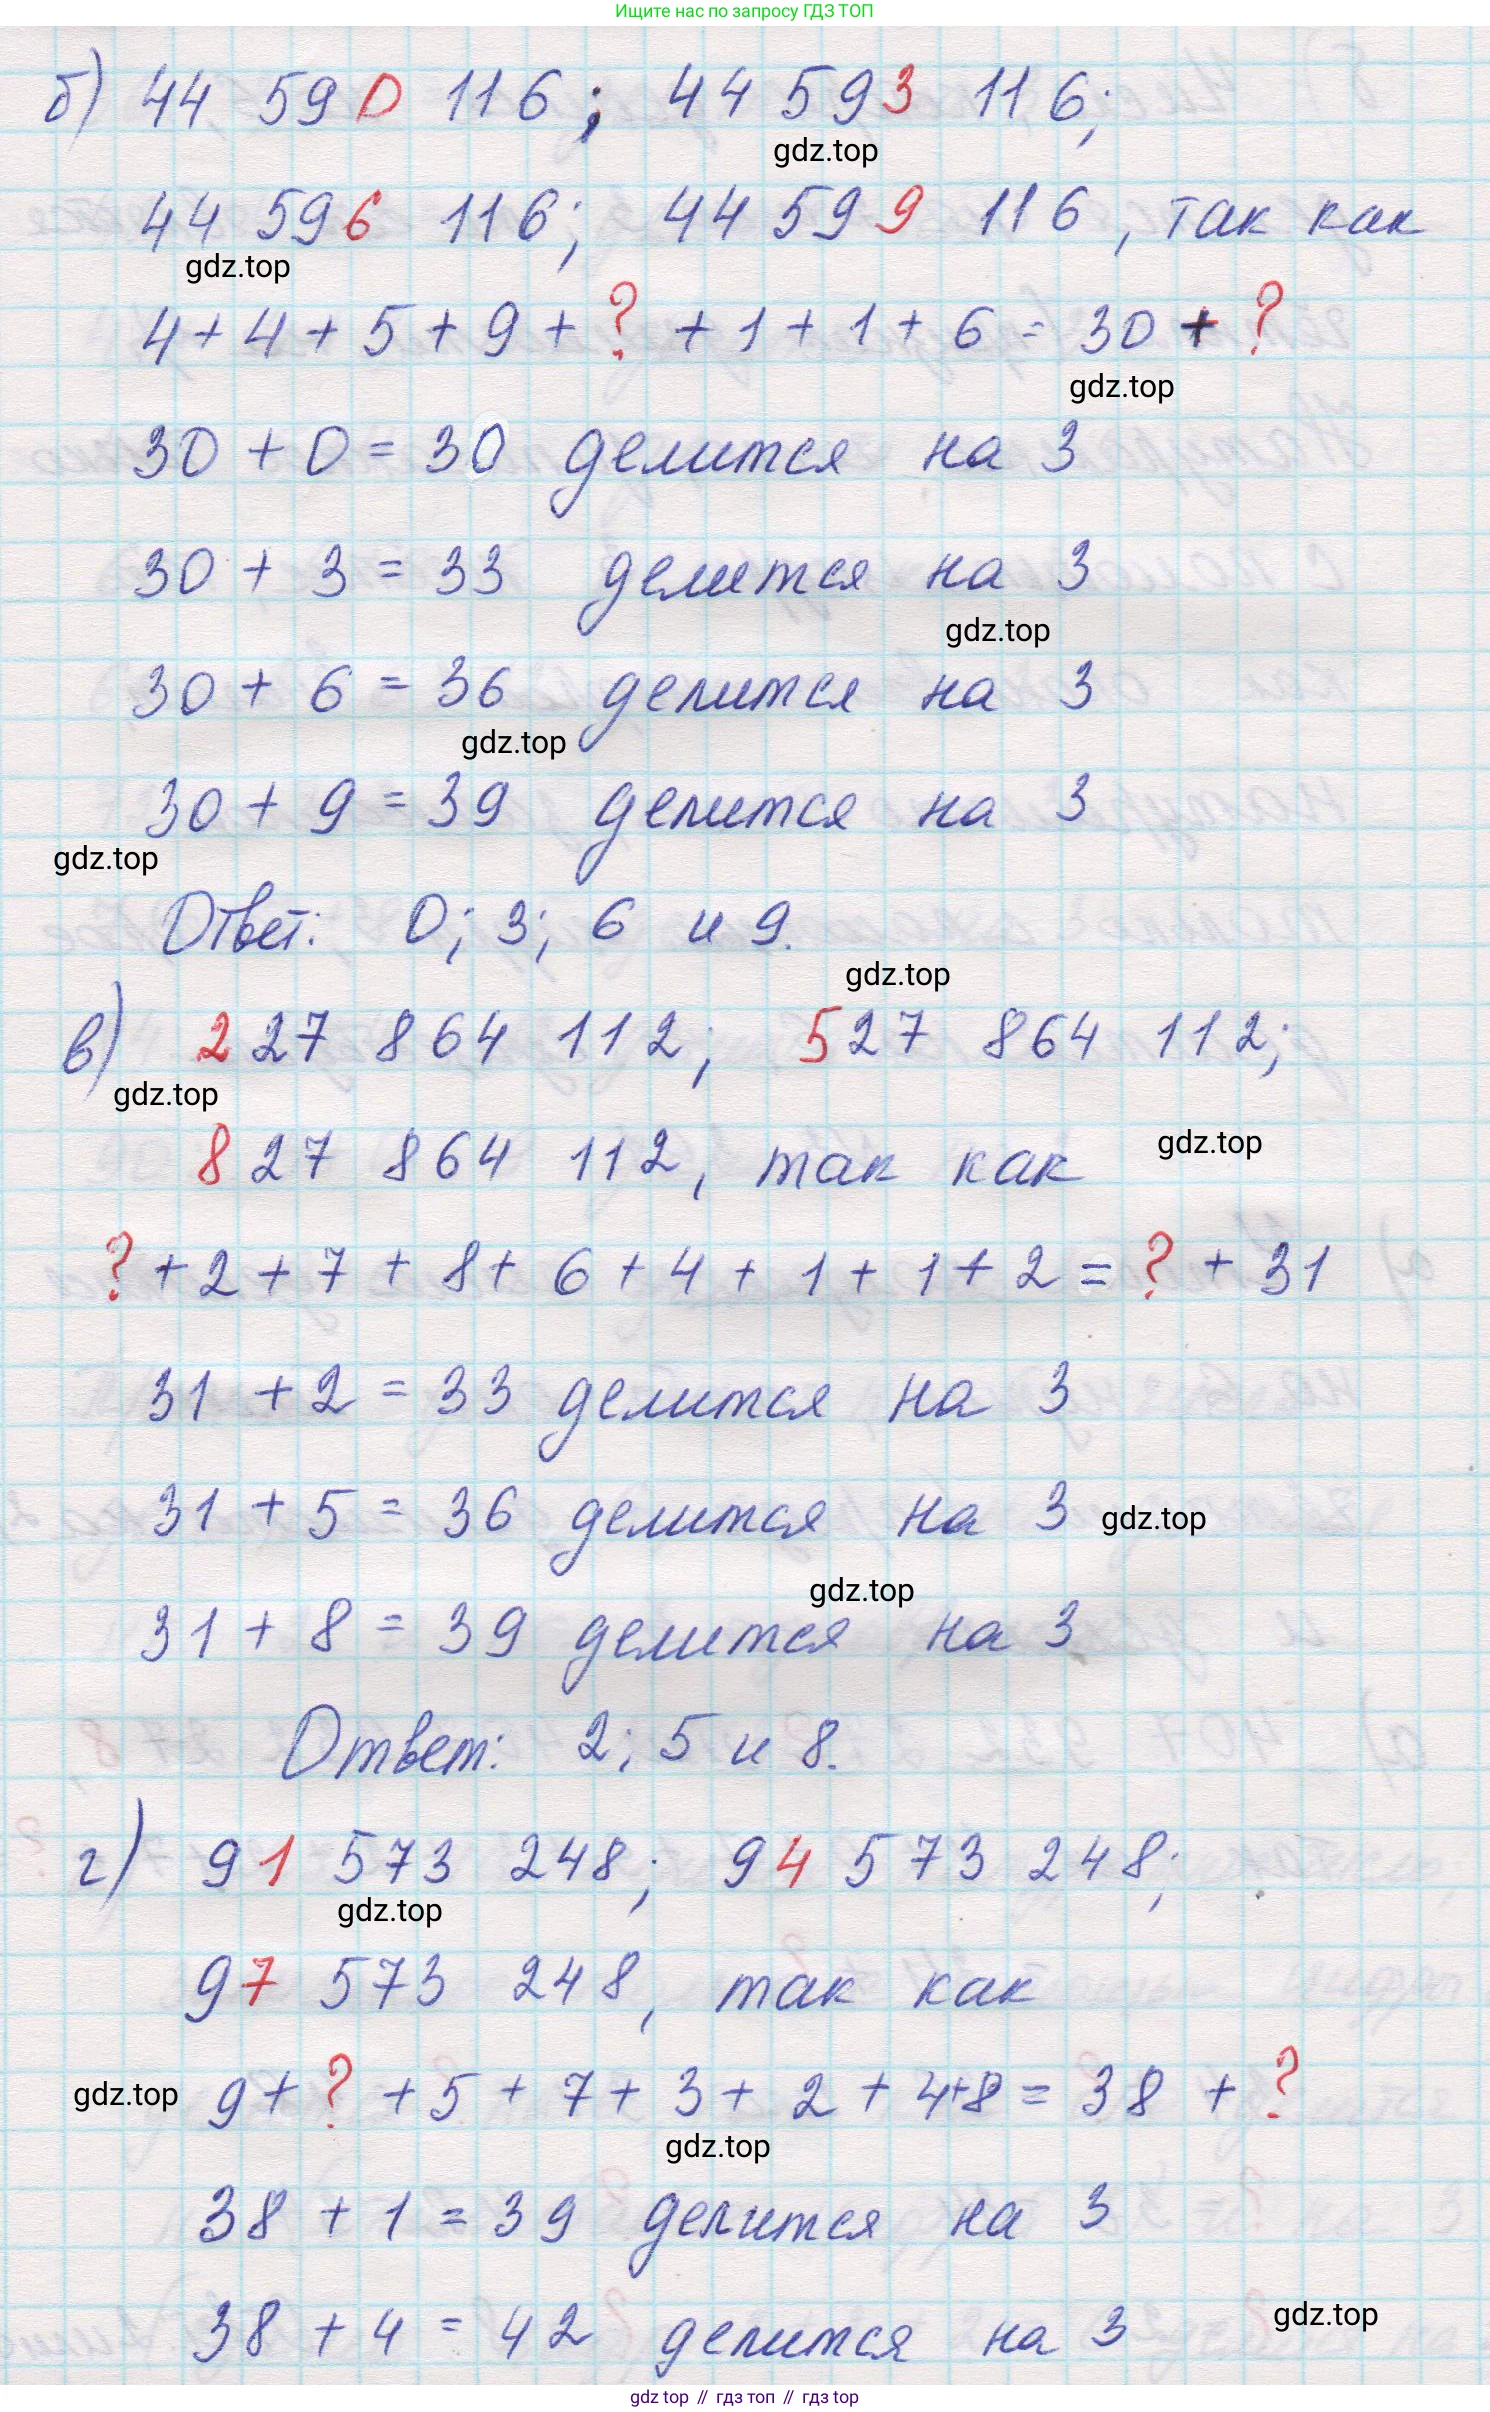 Ищите нас по запросу ГДЗ ТОП
б) 44 590 116; 44 593 116;
gdz.top
44 596 116; 44 599 116, так как
gdz.top
4 + 4 + 5 + 9 + ? + 1 + 1 + 6 = 30 + ?
gdz.top
30 + 0 = 30 делится на 3
30 + 3 = 33 делится на 3
gdz.top
30 + 6 = 36 делится на 3
gdz.top
30 + 9 = 39 делится на 3
gdz.top
Ответ: 0; 3; 6 и 9.
gdz.top
в) 227 864 112; 527 864 112;
gdz.top
827 864 112, так как
gdz.top
? + 2 + 7 + 8 + 6 + 4 + 1 + 1 + 2 = ? + 31
31 + 2 = 33 делится на 3
31 + 5 = 36 делится на 3
gdz.top
gdz.top
31 + 8 = 39 делится на 3
Ответ: 2; 5 и 8.
г) 91 573 248; 94 573 248;
gdz.top
97 573 248, так как
gdz.top
9 + ? + 5 + 7 + 3 + 2 + 4 + 8 = 38 + ?
gdz.top
38 + 1 = 39 делится на 3
38 + 4 = 42 делится на 3
gdz.top
gdz top // гдз топ // гдз top